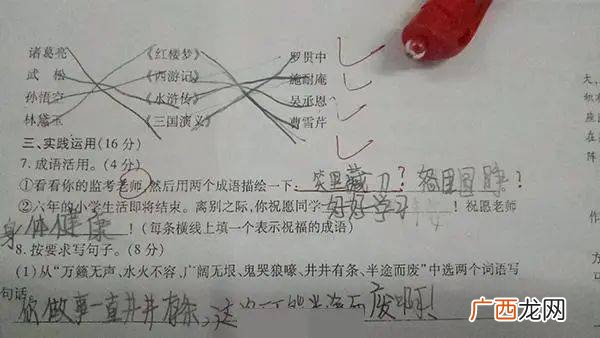 诸葛亮 《红楼梦》 罗贯中
武 松 《西游记》 施耐庵
孙悟空 《水浒传》 吴承恩
林黛玉 《三国演义》 曹雪芹
三、实践运用(16 分)
7. 成语活用。(4 分)
①看看你的监考老师,然后用两个成语描绘一下:笑里藏刀?
②六年的小学生活即将结束。离别之际,你祝愿同学 好好学习 !祝愿老师
身体健康 !(每条横线上填一个表示祝福的成语)
8. 按要求写句子。(8 分)
(1)从“万籁无声、水火不容、广阔无垠、鬼哭狼嚎、井井有条、半途而废”中选两个词语写
句话
你做事一直井井有条,这 废啊!
广西龙网